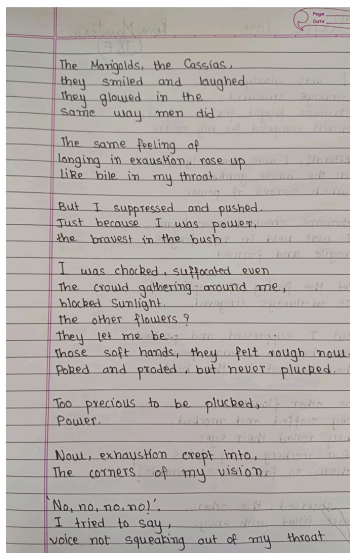 Page
Date
The Marigolds, the Cassias,
they smiled and laughed
they glowed in the
same way men did.
The same feeling of
longing in exaustion, rose up
like bile in my throat.
But I suppressed and pushed.
Just because I was power,
the bravest in the bush
I was chocked, suffocated even
The crowd gathering around me,
blocked sunlight.
the other flowers?
They let me be.
Those soft hands, they felt rough now.
Poked and proded, but never plucked.
Too precious to be plucked,
Power.
Now, exhaustion crept into,
The corners of my vision.
'No, no, no, no!'.
I tried to say,
voice not squeaking out of my throat